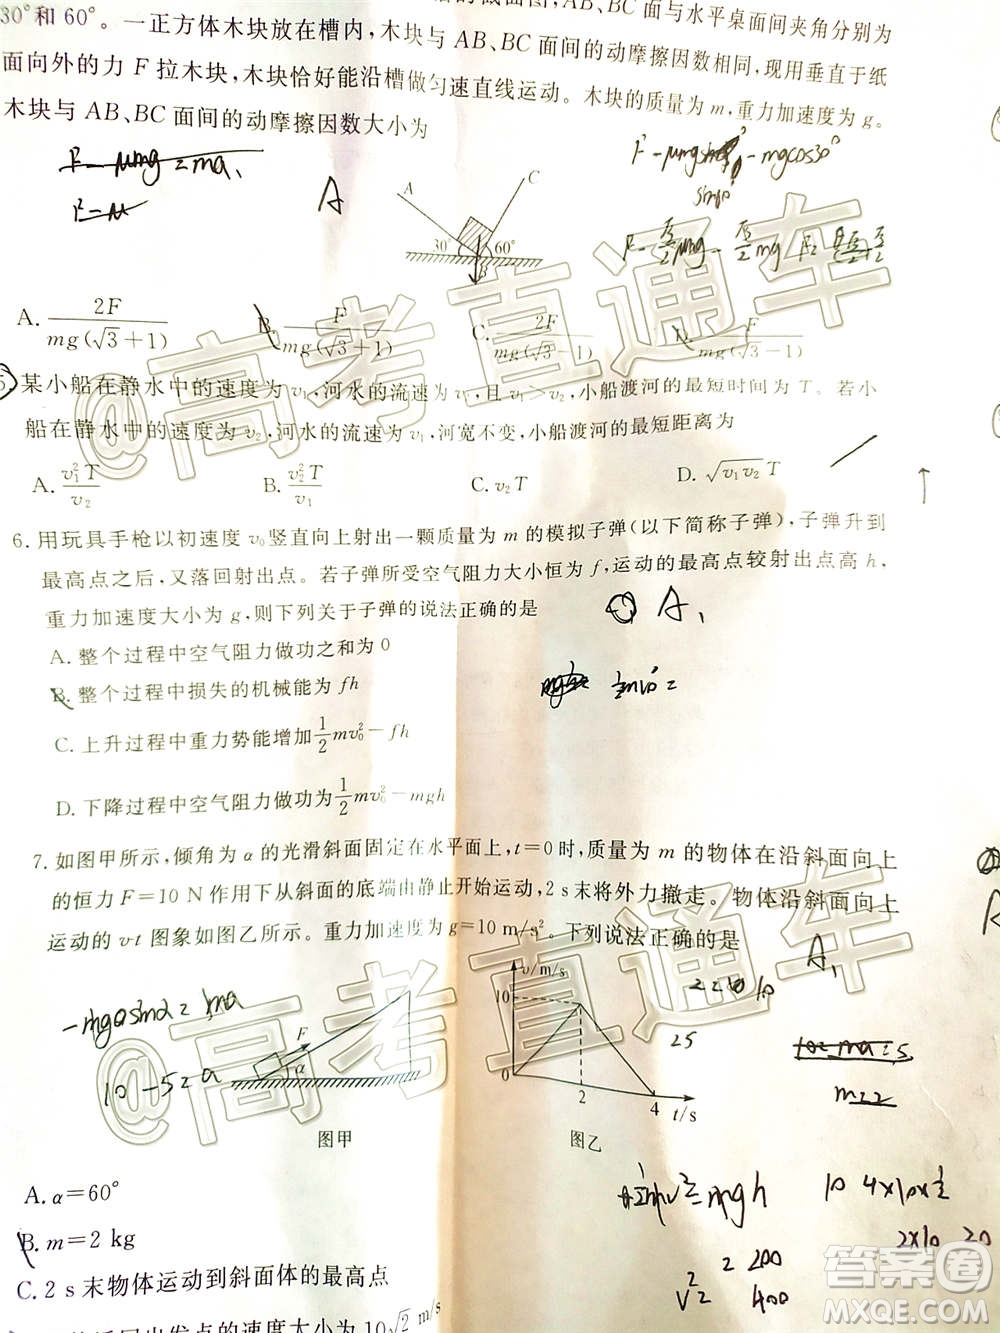 的截面图,AB、BC 面与水平桌面间夹角分别为
30°和 60°。一正方体木块放在槽内,木块与 AB、BC 面间的动摩擦因数相同,现用垂直于纸
面向外的力 F 拉木块,木块恰好能沿槽做匀速直线运动。木块的质量为 m,重力加速度为 g。
木块与 AB、BC 面间的动摩擦因数大小为
F-μmg=ma,
A
F-μmg -mgcos30°
A C 30° 60° B
A. 2F/mg(√3+1)
B. F/mg(√3+1)
C. 2F/mg(√3-1)
D. F/mg(√3-1)
5 某小船在静水中的速度为 v₁,河水的流速为 v₂,且 v₁>v₂,小船渡河的最短时间为 T。若小
船在静水中的速度为 v₂,河水的流速为 v₁,河宽不变,小船渡河的最短距离为
A. v₁²T/v₂
B. v₂²T/v₁
C. v₂T
D. √v₁v₂ T
6. 用玩具手枪以初速度 v₀ 竖直向上射出一颗质量为 m 的模拟子弹(以下简称子弹),子弹升到
最高点之后,又落回射出点。若子弹所受空气阻力大小恒为 f,运动的最高点较射出点高 h,
重力加速度大小为 g,则下列关于子弹的说法正确的是
A.
A. 整个过程中空气阻力做功之和为 0
B. 整个过程中损失的机械能为 fh
C. 上升过程中重力势能增加 1/2 mv₀²-fh
D. 下降过程中空气阻力做功为 1/2 mv₀²-mgh
7. 如图甲所示,倾角为 α 的光滑斜面固定在水平面上,t=0时,质量为 m 的物体在沿斜面向上
的恒力 F=10 N 作用下从斜面的底端由静止开始运动,2 s末将外力撤走。物体沿斜面向上
运动的 v-t 图象如图乙所示。重力加速度为 g=10 m/s²。下列说法正确的是
A.
10-5=a
F α
图甲
v/m/s 10 0 2 4 t/s
图乙
25
m=2
A. α=60°
B. m=2 kg
C. 2 s 末物体运动到斜面体的最高点
返回出发点的速度大小为 10√2 m/s
mv²=mgh
=200
v² 400
10 4×10×1/2
2×10 20
@高考直通车
@高考直通车
答案圈
MXQE.COM